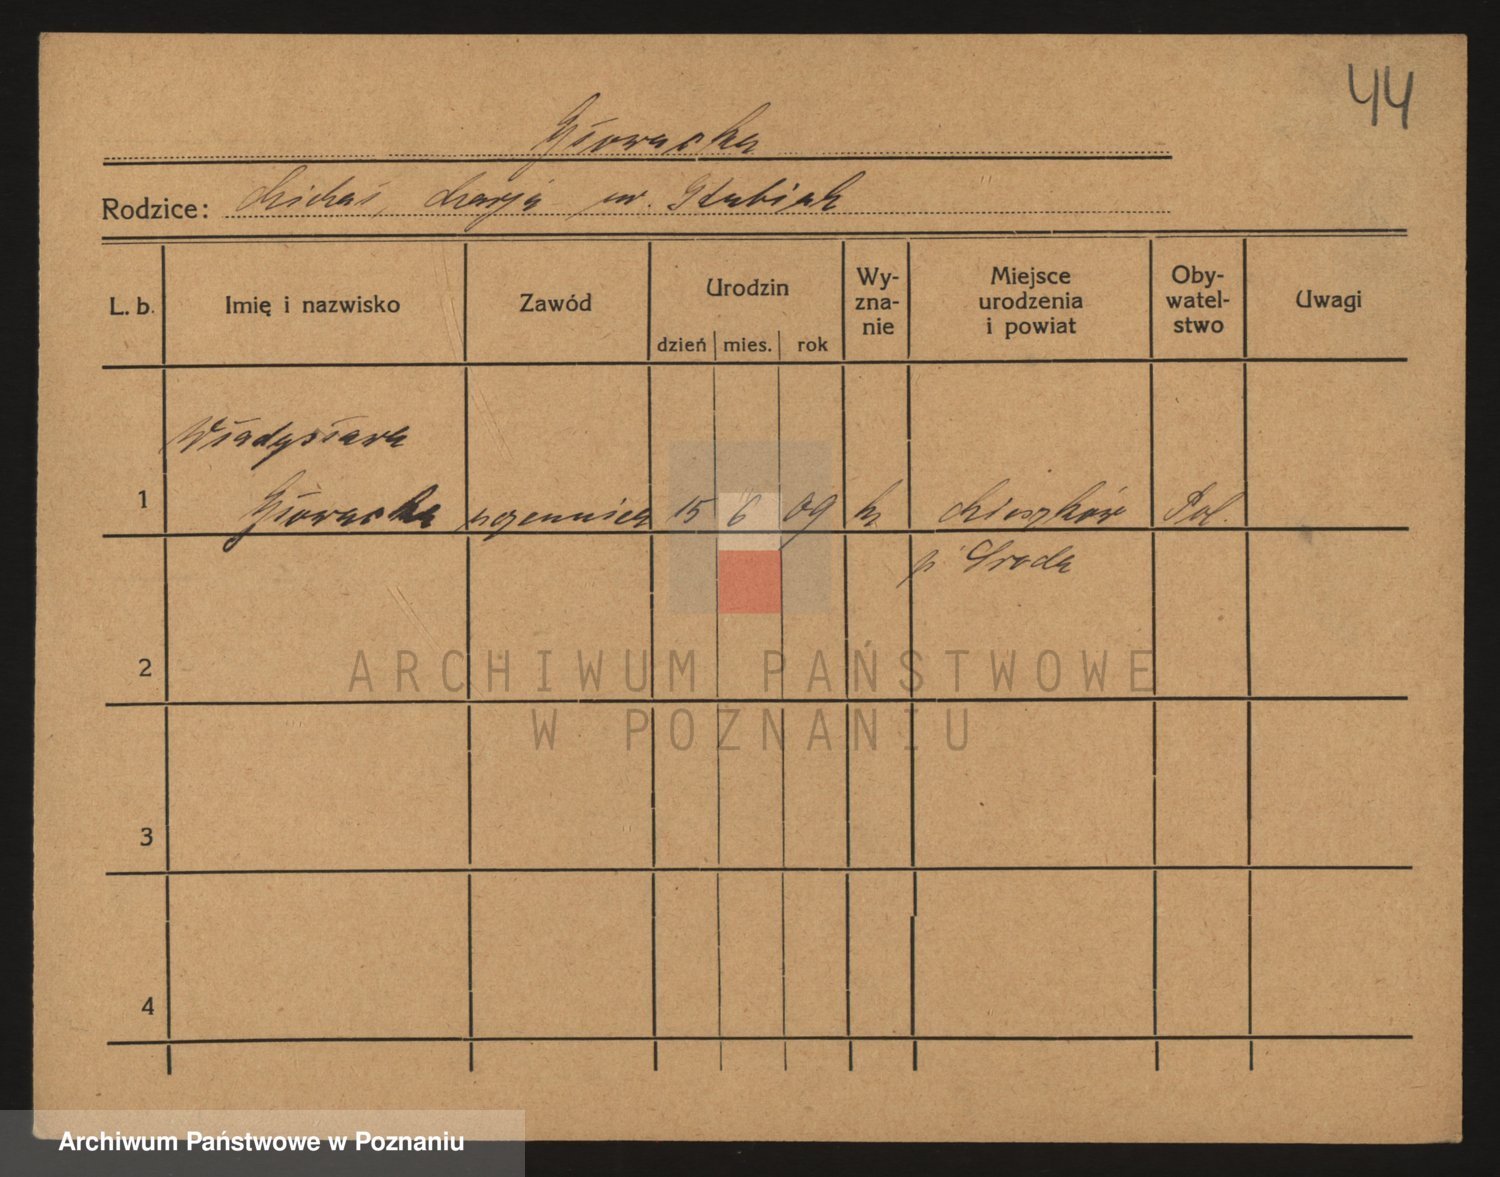 44
Głowacka
Rodzice: Michał, Marja ur. Stubiak
L. b.
Imię i nazwisko
Zawód
Urodzin
dzień mies. rok
Wy-
zna-
nie
Miejsce
urodzenia
i powiat
Oby-
watel-
stwo
Uwagi
Władysława
1 Głowacka uczennica 15 6 09 kr Mieszków Pol.
p. Środa
2
3
4
ARCHIWUM PAŃSTWOWE
W POZNANIU
Archiwum Państwowe w Poznaniu